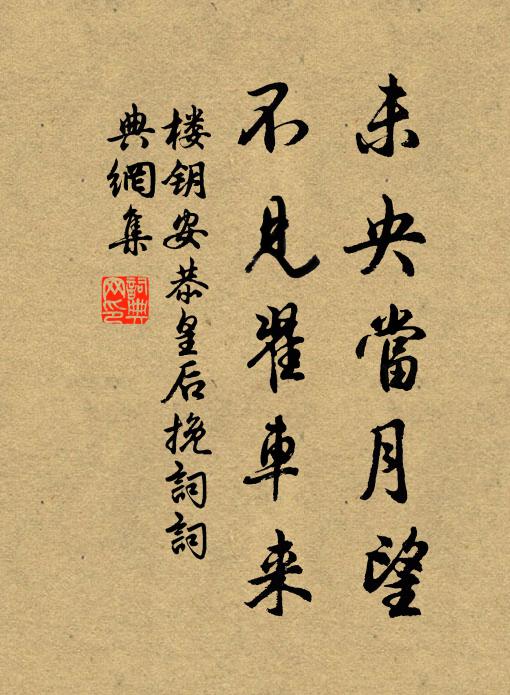 未央當月望
不見翟車来
楼钥安恭皇后挽詞詞
典網集
詞典網印